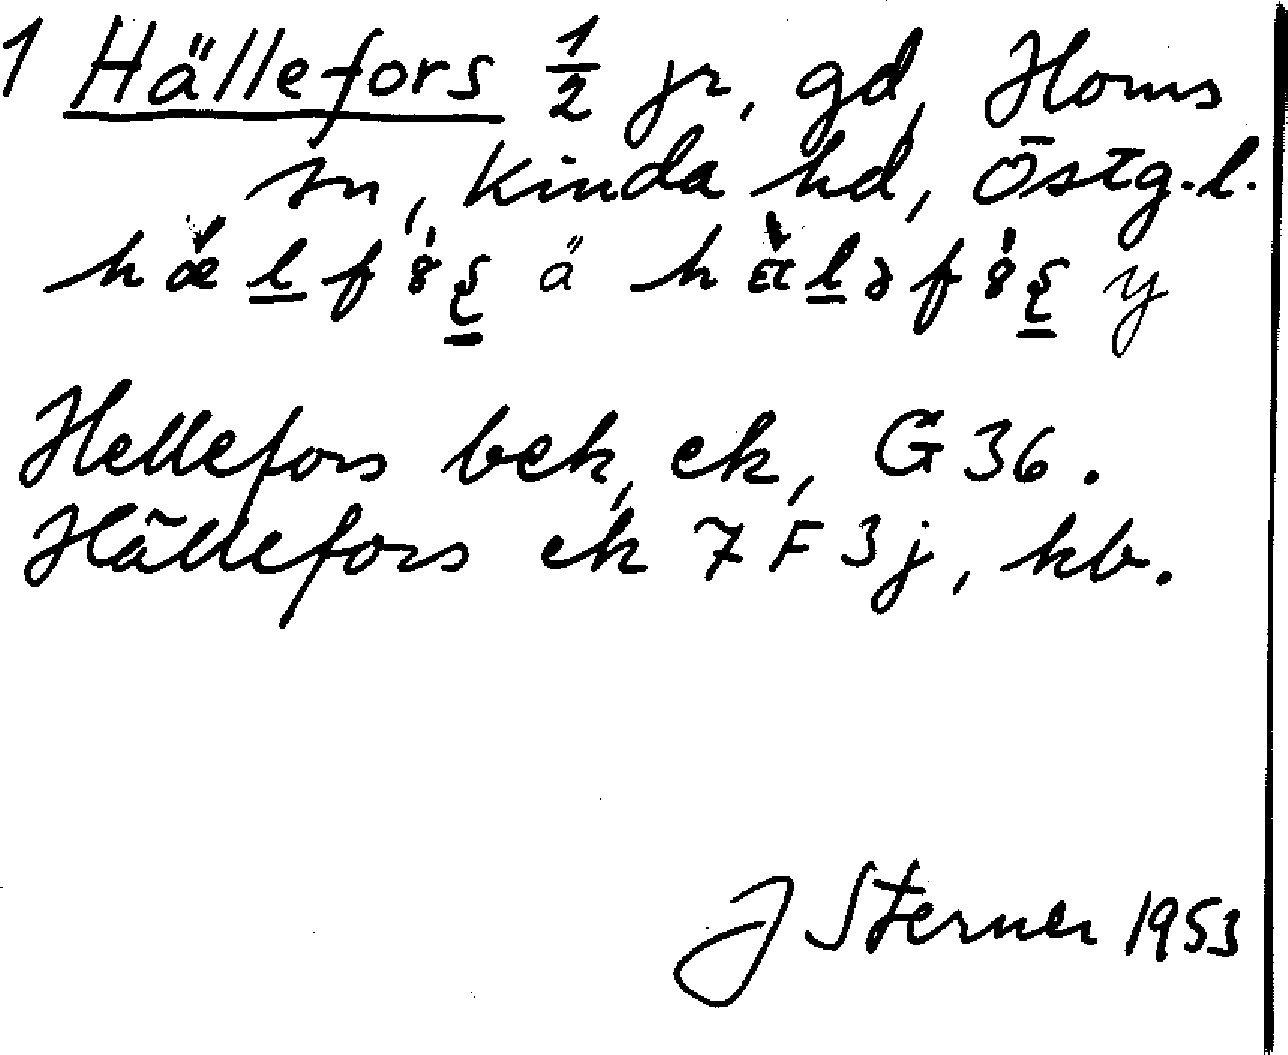 1 Hällefors ½ jr, gd, Horns
sn, Kinda hd, Östg.l.
ä y
Hellefors bek, ek, G 36.
Hällefors ek 7 F 3j, kb.
J Sterner 1953